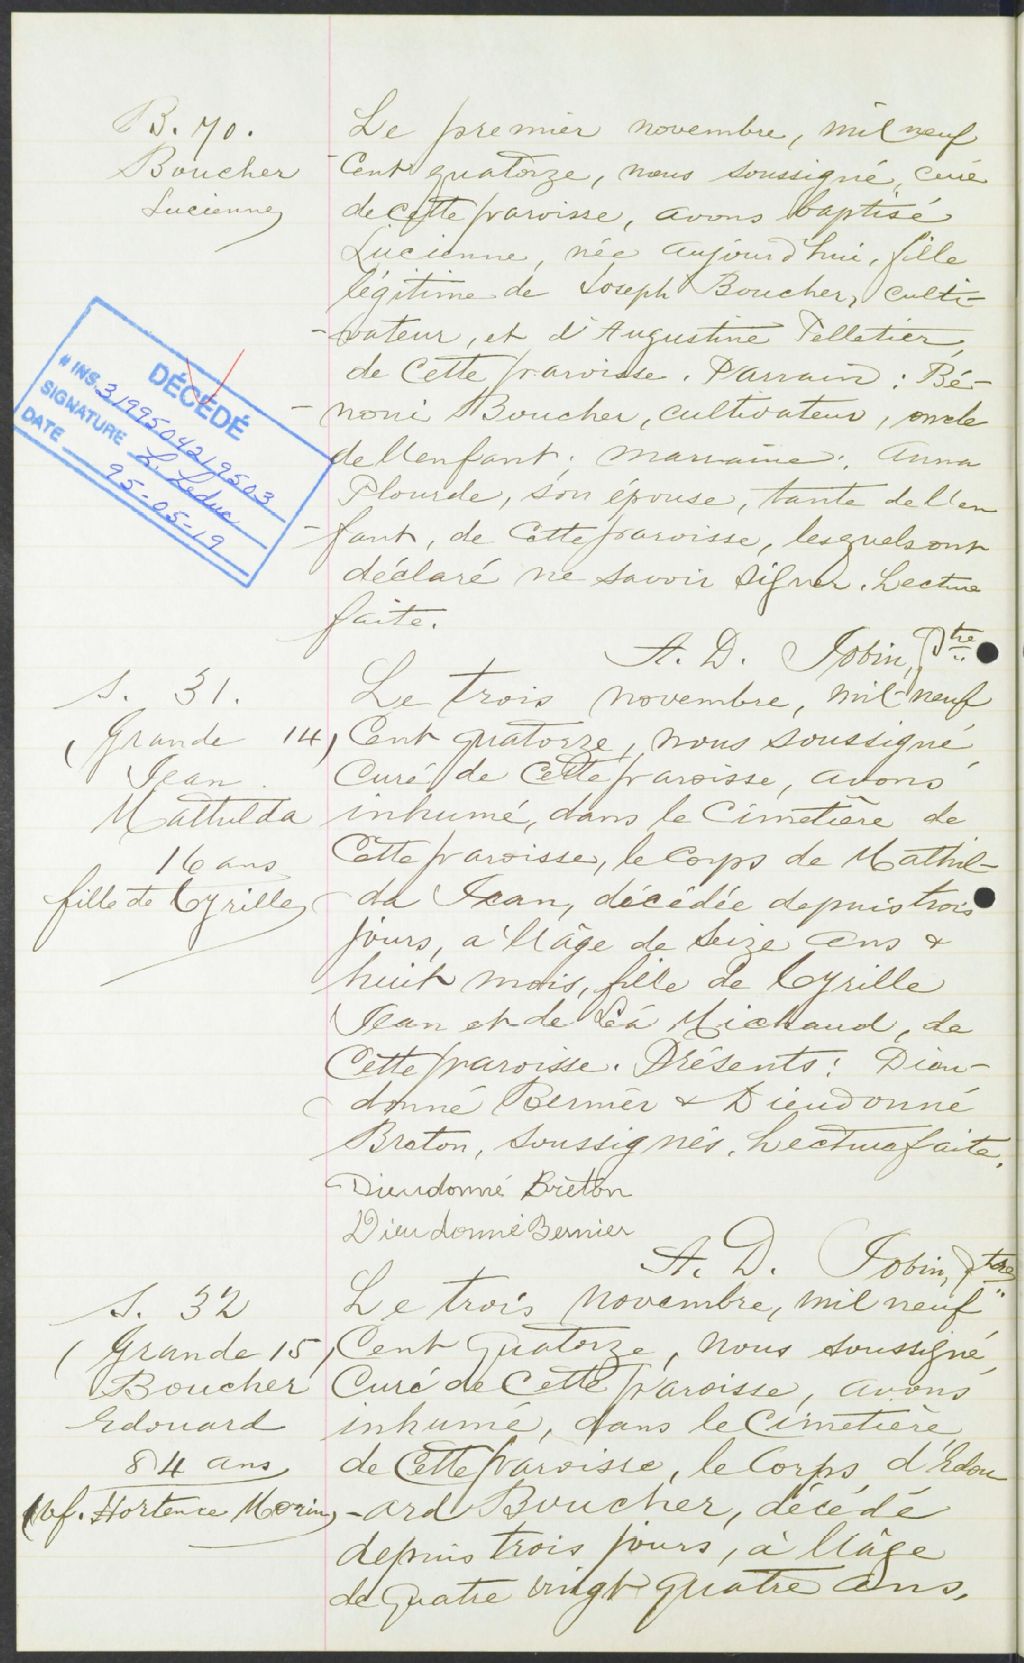 B. 70.
Boucher
Lucienne
Le premier novembre, mil neuf
cent quatorze, nous soussigné, curé
de cette paroisse, avons baptisé
Lucienne, née aujourd'hui, fille
légitime de Joseph Boucher, culti-
-vateur, et d'Augustine Pelletier,
de cette paroisse. Parrain: Bé-
-noni Boucher, cultivateur, oncle
de l'enfant; marraine: Anna
Plourde, son épouse, tante de l'en
-fant, de cette paroisse, lesquels ont
déclaré ne savoir signer. Lecture
faite.
A. D. Jobin, Ptre
DÉCÉDÉ
# INS. 3199504219503
SIGNATURE L. Leduc
DATE 95-05-19
S. 31.
(Grande 14)
Jean
Mathilda
16 ans
fille de Cyrille
Le trois novembre, mil-neuf
cent quatorze, nous soussigné
curé de cette paroisse, avons
inhumé, dans le cimetière de
cette paroisse, le corps de Mathil-
-da Jean, décédée depuis trois
jours, à l'âge de seize ans &
huit mois, fille de Cyrille
Jean et de Léa Michaud, de
cette paroisse. Présents: Dieu-
-donné Bernier & Dieudonné
Breton, soussignés. Lecture faite.
Dieudonné Breton
Dieudonné Bernier
A. D. Jobin, ptre
S. 32
(Grande 15)
Boucher
Edouard
84 ans
(vf. Hortence Morin)
Le trois novembre, mil neuf
cent quatorze, nous soussigné,
curé de cette paroisse, avons
inhumé, dans le cimetière
de cette paroisse, le corps d'Edou
-ard Boucher, décédé
depuis trois jours, à l'âge
de quatre vingt quatre ans,